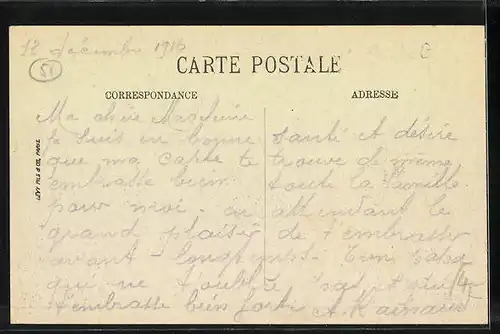 12 décembre 1916
51
CARTE POSTALE
CORRESPONDANCE
ADRESSE
Ma chère
Je suis en bonne santé et désire
que ma carte te trouve de même
embrasse bien toute la famille
pour moi, en attendant le
grand plaisir de t'embrasser
avant longtemps. Ton
qui ne t'oublie et qui
t'embrasse bien fort A.